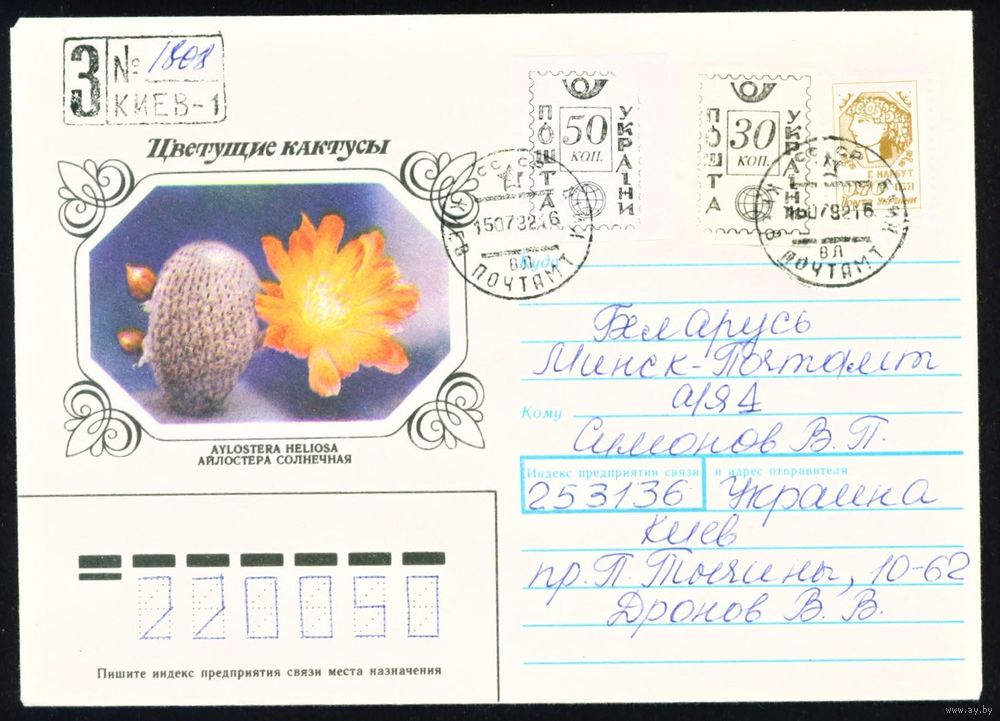 З № 1808
КИЕВ-1
Цветущие кактусы
AYLOSTERA HELIOSA
АЙЛОСТЕРА СОЛНЕЧНАЯ
ПОШТА 50 КОП. УКРАЇНИ
ПОШТА 30 КОП. УКРАЇНИ
Г. НАРБУТ
Пошта України
СССР
15079216
КИЕВ ВЛ ПОЧТАМТ
СССР
15079216
КИЕВ ВЛ ПОЧТАМТ
Куда
Беларусь
Минск-Почтамт
а/я 1
Кому
Симонов В. П.
Индекс предприятия связи и адрес отправителя
253136 Украина
Киев
пр. П. Тычины, 10-62
Дронов В. В.
220050
Пишите индекс предприятия связи места назначения
www.ay.by